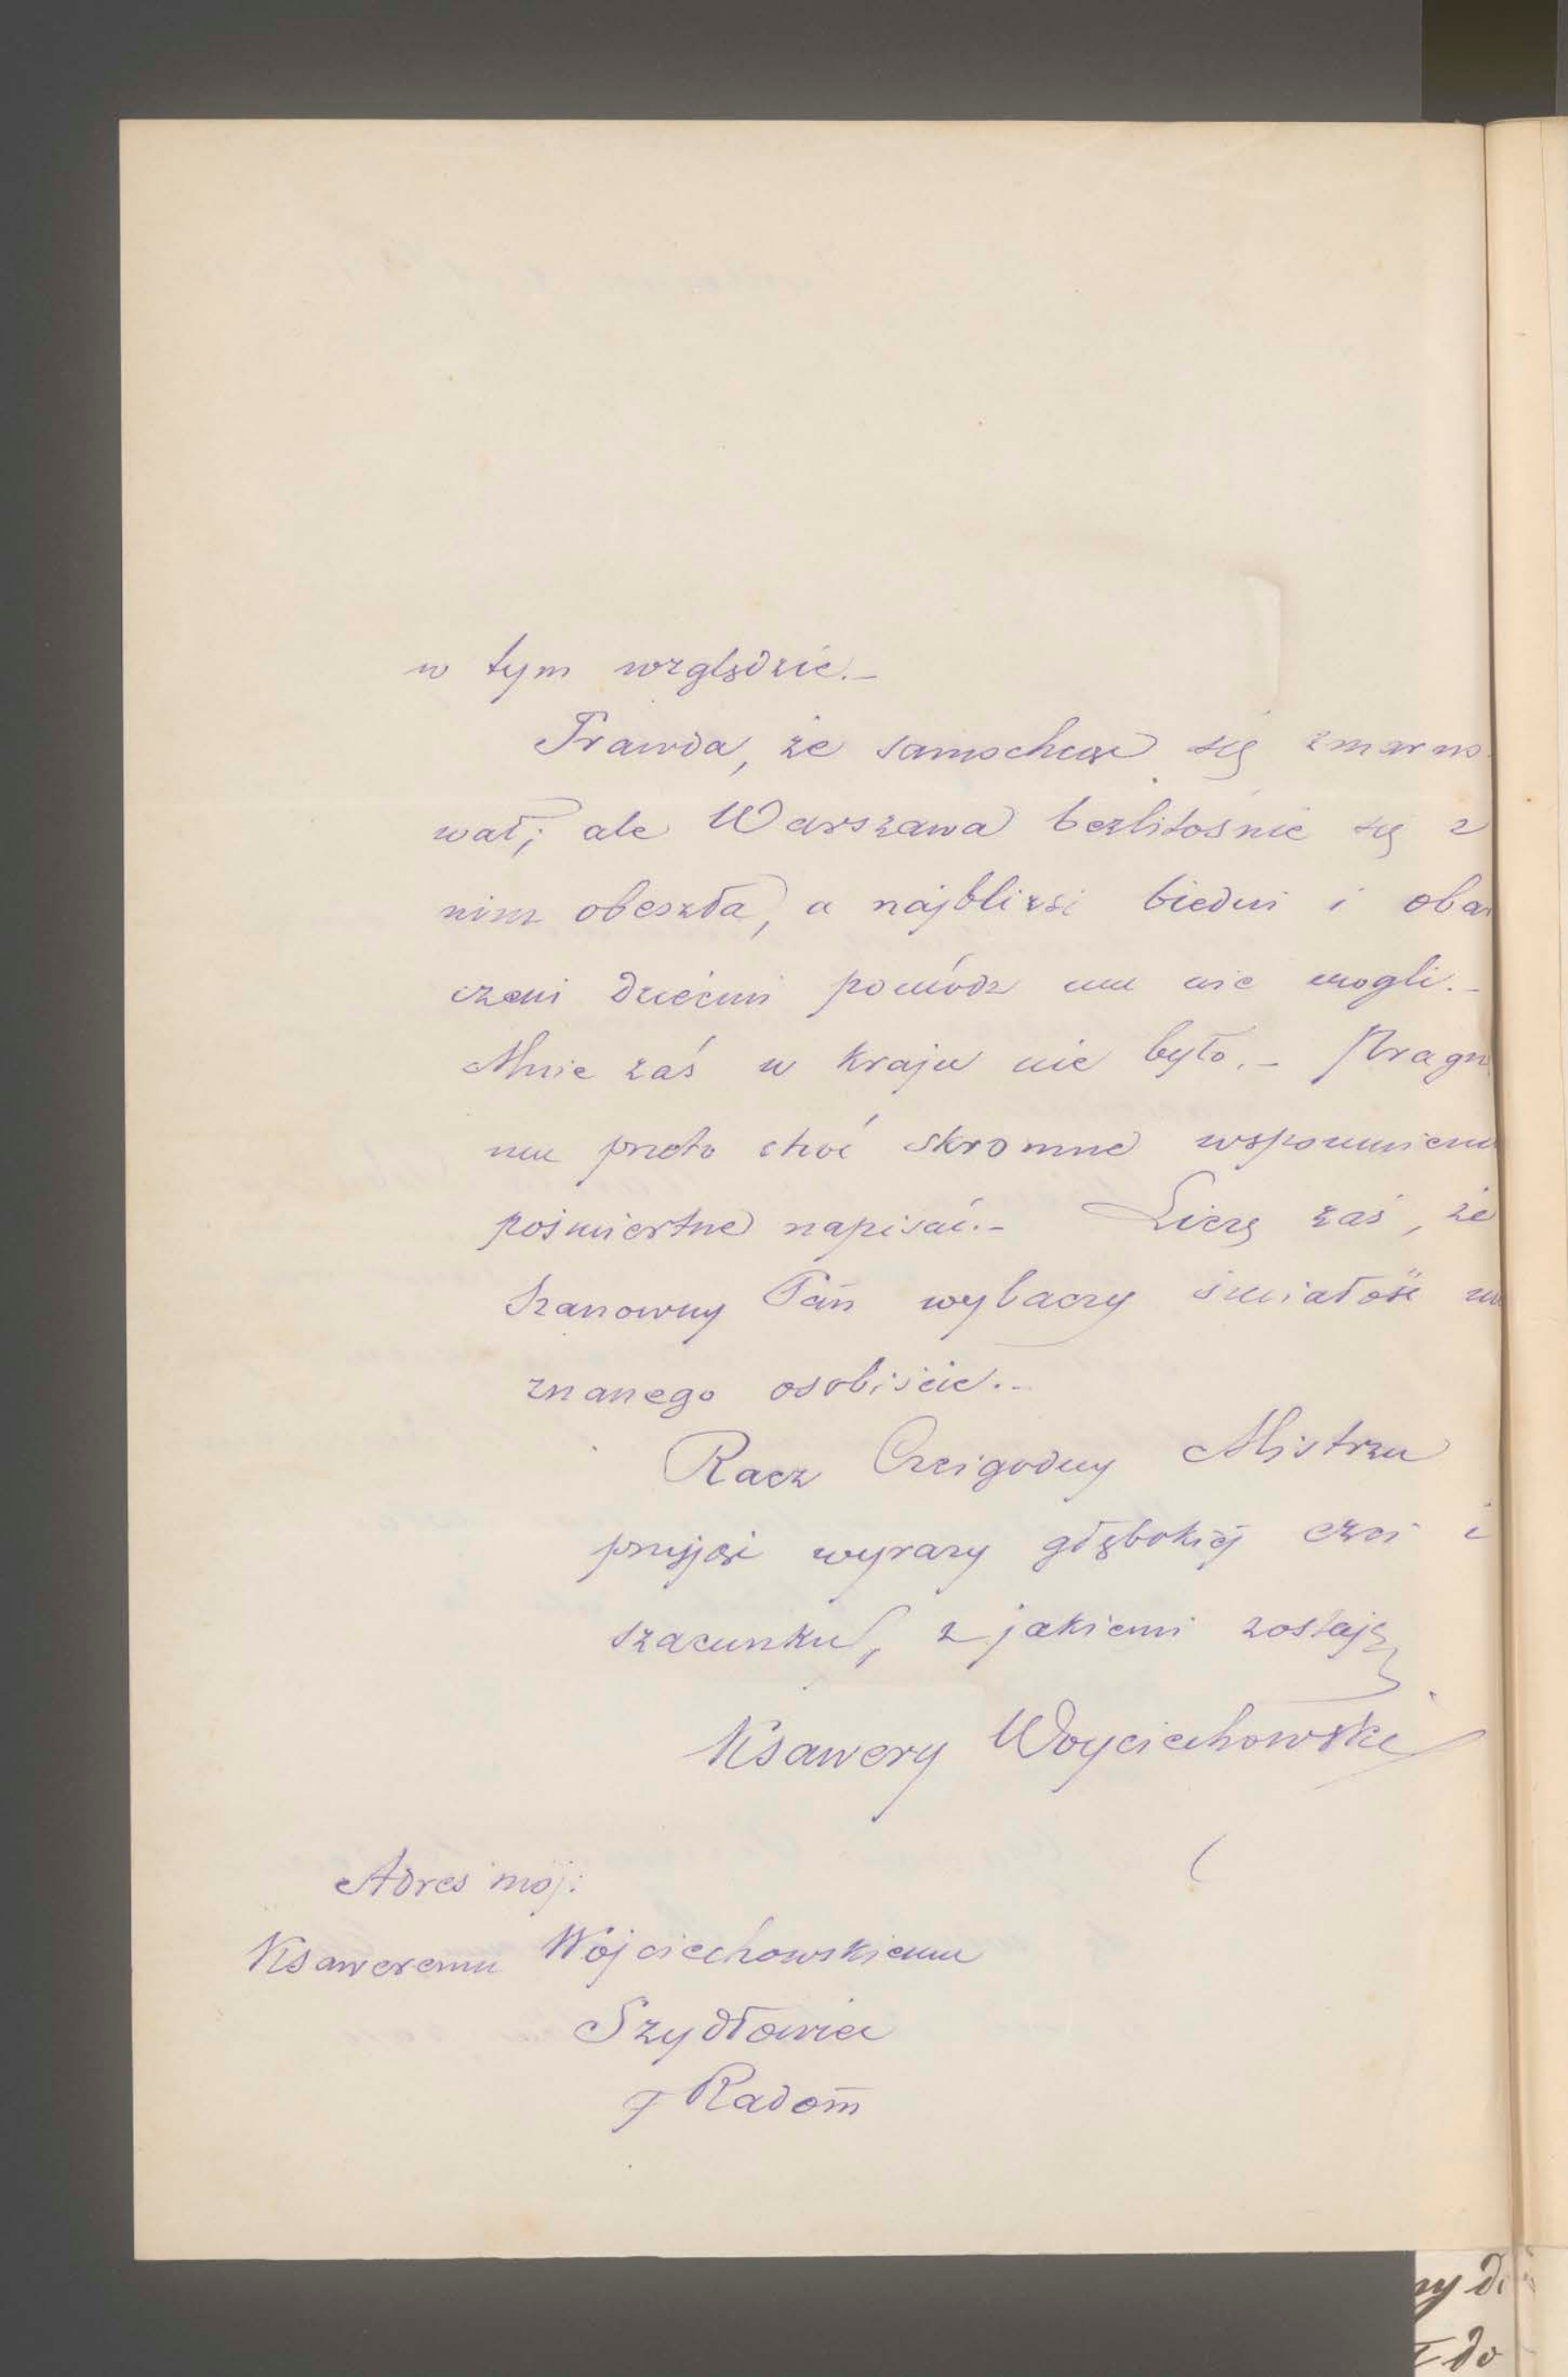 w tym względzie.-
Prawda, że samochcąc się zmarno-
wał; ale Warszawa bezlitośnie się z
nim obeszła, a najbliżsi biedni i obar
czeni dziećmi pomódz mu nie mogli.-
Mnie zaś w kraju nie było.- Pragn
mu przeto choć skromne wspomnieni
pośmiertne napisać.- Liczę zaś, że
Szanowny Pan wybaczy śmiałość
znanego osobiście.-
Racz Czcigodny Mistrzu
przyjąć wyrazy głębokiéj czci i
szacunku, z jakiemi zostaję
Ksawery Woyciechowski
Adres mój:
Ksaweremu Wójciechowskiemu
Szydłowiec
Radom
ny d
do